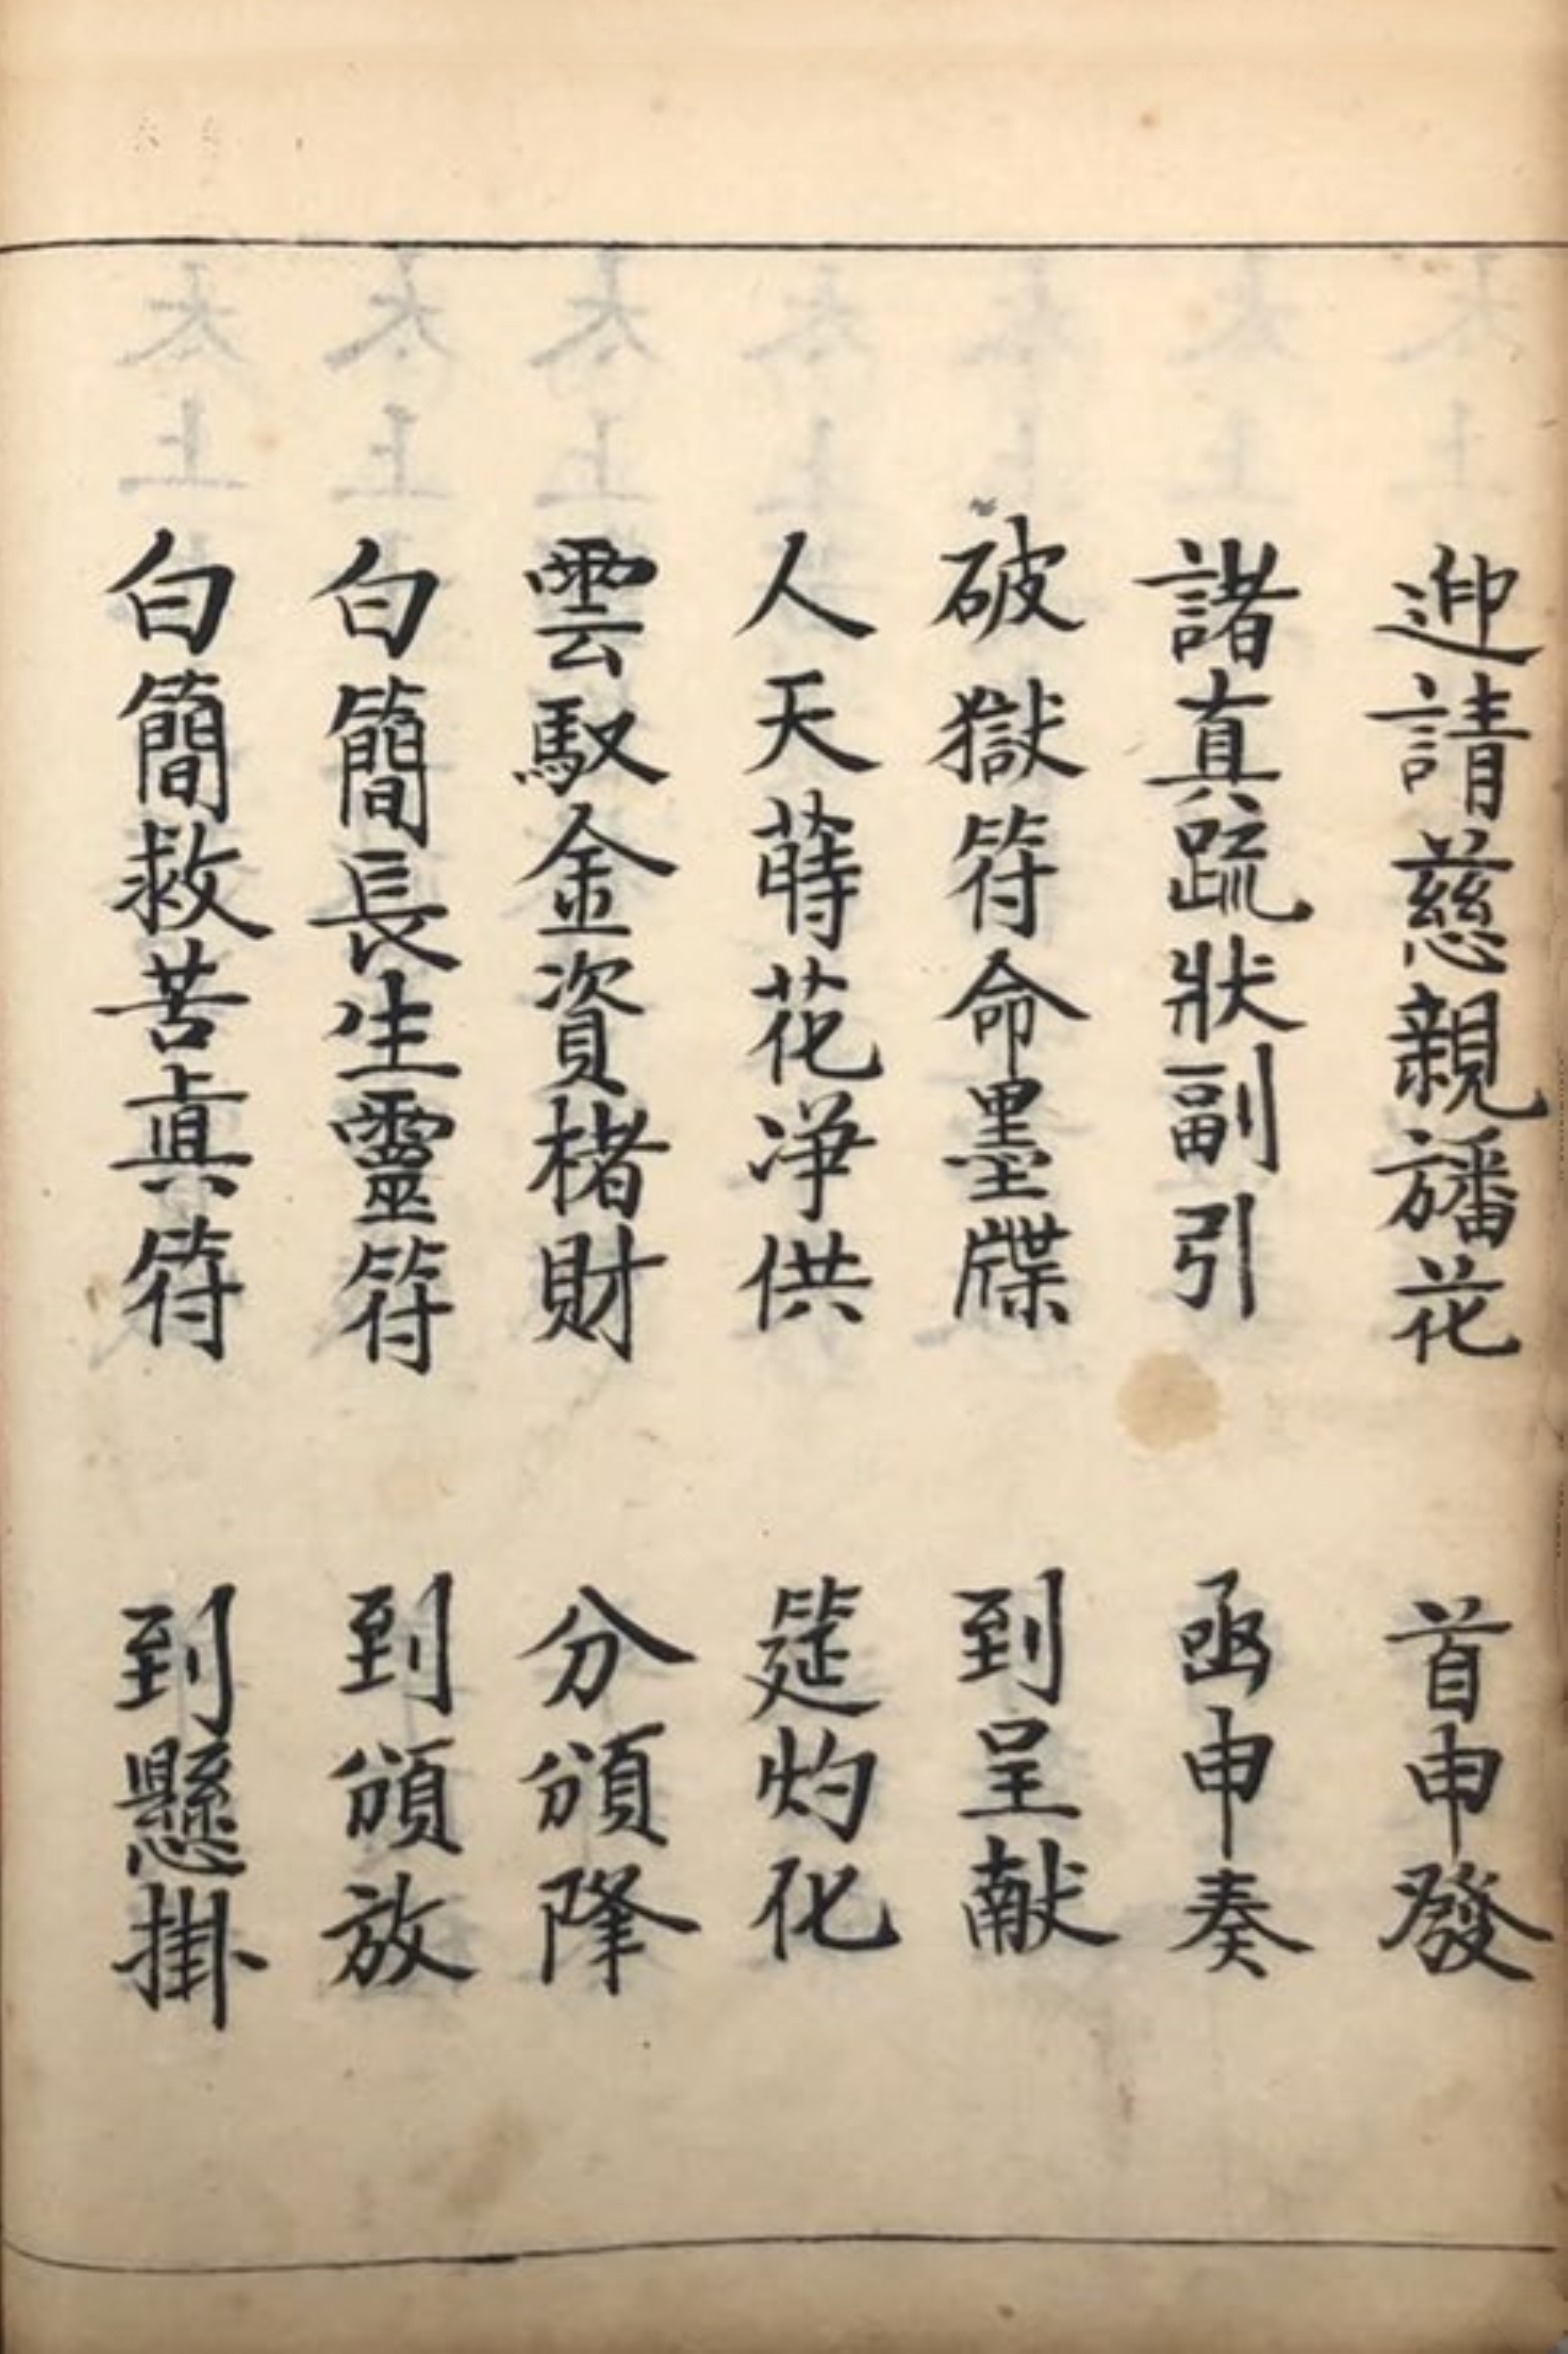 迎請慈親旛花 首申發
諸真䟽狀副引 函申奏
破獄符命墨牒 到呈献
人天蒔花凈供 筵灼化
雲馭金資楮財 分頒降
白簡長生靈符 到頒放
白簡救苦眞符 到懸掛